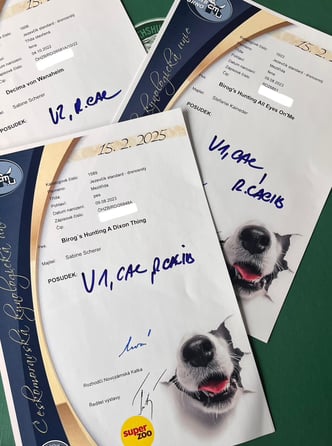 15. 2. 2025
Decima von Wanaheim
Majitel: Sabine Scherer
POSUDEK:
V2, R.CAC
15. 2. 2025
Mezitřída
fena
Birog's Hunting All Eyes On Me
Majitel: Stefanie Kamieder
POSUDEK:
V1, CAC
R.CACIB
15. 2. 2025
Katalogové číslo: 1589
Jezevčík standard - drsnosrstý
Třída: Mezitřída
Pohlaví: pes
Datum narození: 09.08.2023
Zápisové číslo:
Čip:
Birog's Hunting A Dixon Thing
Majitel: Sabine Scherer
POSUDEK:
V1, CAC R.CACIB
Rozhodčí Novozámská Katka
Ředitel výstavy
super
zoo
Českomoravská kynologická unie